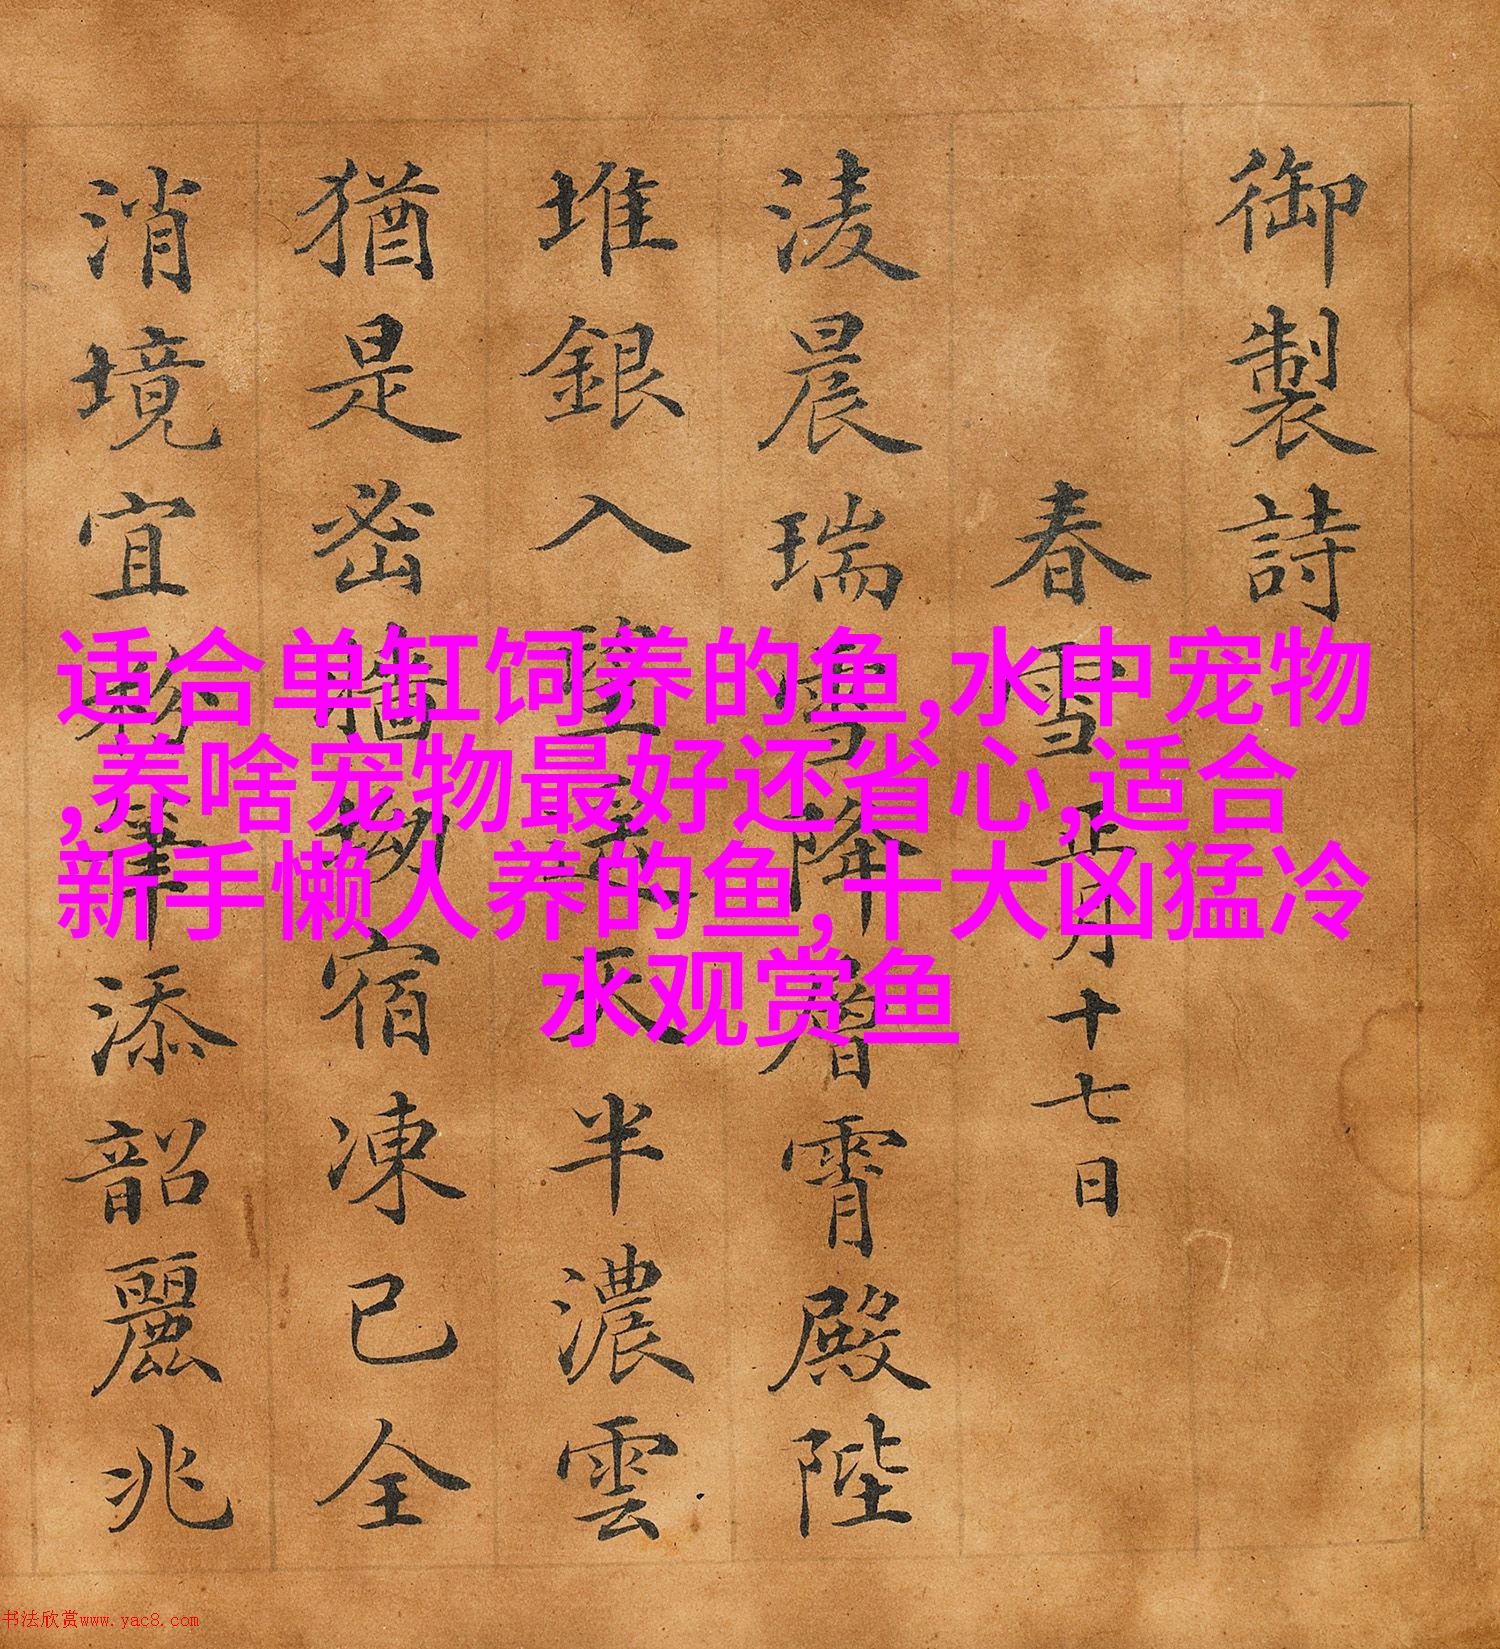 御製詩
春雪 正月十七日
淩晨瑞雪降層霄殿陛
堆銀入望遥天半濃雲
猶是密牆拗宿凍已全
消境宜筆添韶麗兆
适合单缸饲养的鱼,水中宠物
,养啥宠物最好还省心,适合
新手懒人养的鱼,十大凶猛冷
水观赏鱼
书法欣赏www.yac8.com